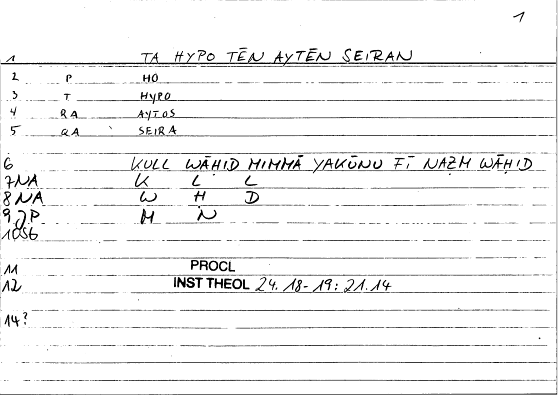 1
1 TA HYPO TĒN AYTĒN SEIRAN
2 P HO
3 T HYPO
4 RA AYTOS
5 QA SEIRA
6 KULL WĀHID MIMMĀ YAKŪNU FĪ NAẒM WĀHID
7NA K L L
8NA W H D
9JP M N
10SG
11 PROCL
12 INST THEOL 24.18-19: 21.14
14?